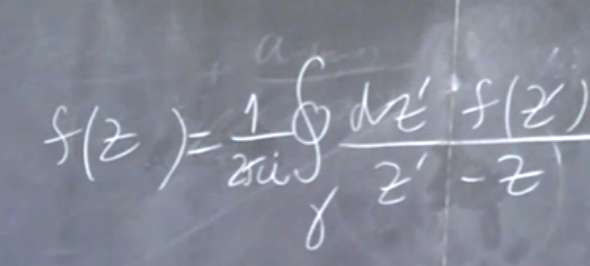 f(z) = \frac{1}{2\pi i} \oint_{\gamma} \frac{dz' f(z')}{z' - z}